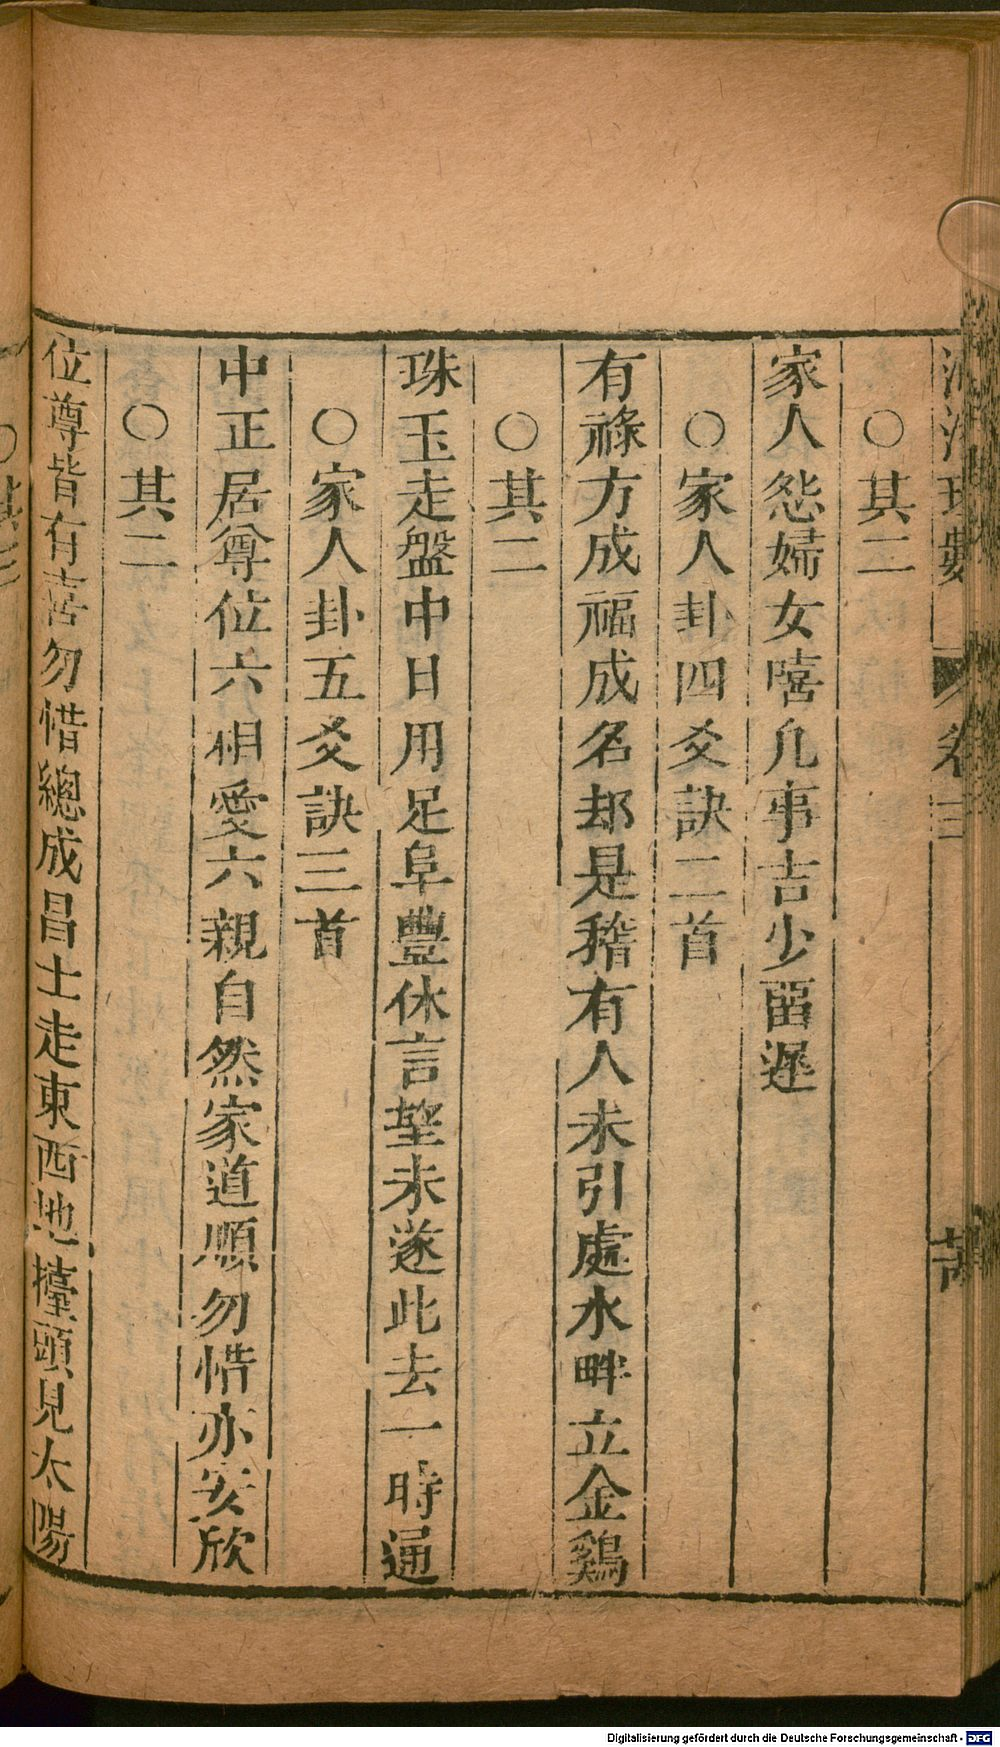 理數 卷三
○其二
家人怨婦女嘻凢事吉少畱遲
○家人卦四爻訣二首
有祿方成福成名却是稽有人未引處水畔立金鷄
○其二
珠玉走盤中日用足阜豐休言望未遂此去一時通
○家人卦五爻訣三首
中正居尊位六相愛六親自然家道順勿惜亦安欣
○其二
位尊皆有喜勿惜總成昌士走東西地擡頭見太陽
Digitalisierung gefördert durch die Deutsche Forschungsgemeinschaft - DFG